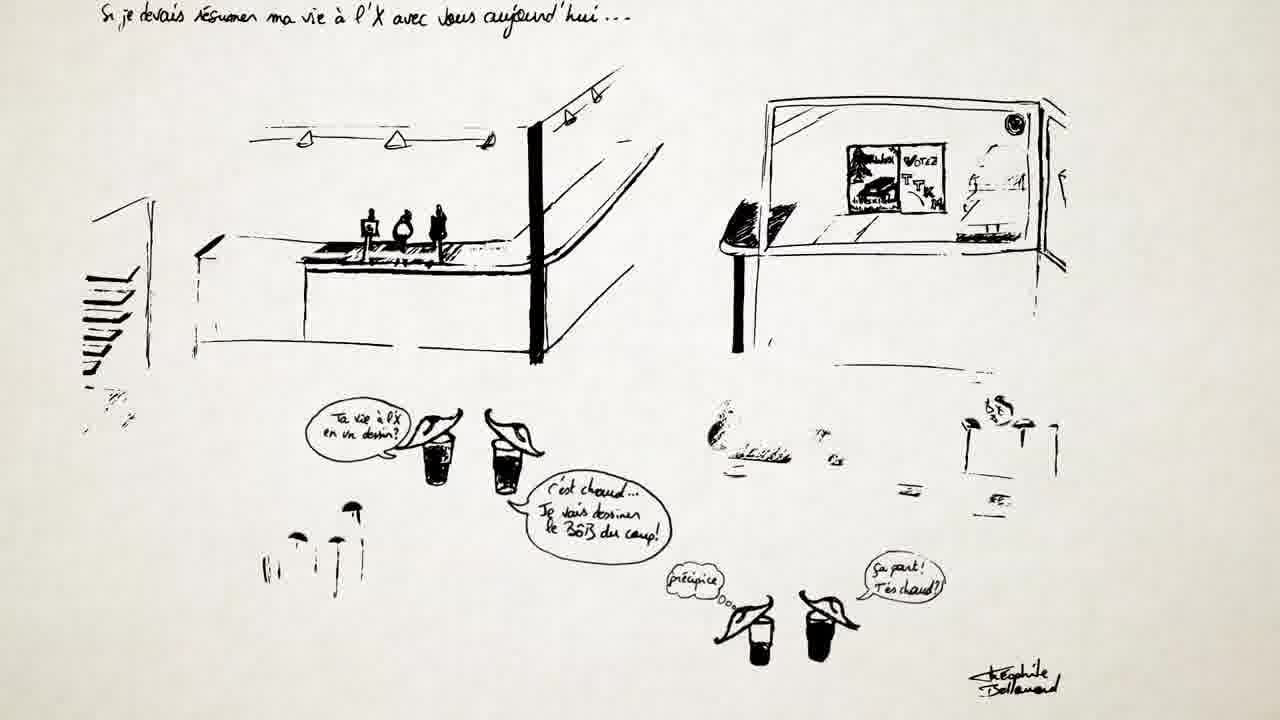 Si je devais résumer ma vie à l'X avec vous aujourd'hui...
VOTEZ
T
T
K
Ta vie à l'X
en un dessin?
C'est chaud...
Je vais dessiner
le BôB du coup!
précipice
Ça part!
T'es chaud?
Théophile